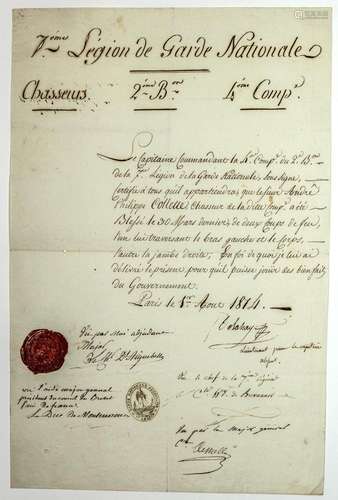 7ème Légion de Garde Nationale
Chasseurs 2ème Bon 4ème Compe
Le Capitaine Commandant la 4e Compe du 2e Bon
de la 7e Légion de la Garde Nationale, soussigné,
certifie à tous qu'il appartiendra que le sieur André
Philippe Collette Chasseur de la dite Compe a été
Blessé le 30 Mars dernier, de deux Coups de feu,
l'un lui traversant le bras gauche et le Corps,
l'autre la jambe droite; En foi de quoi je lui ai
délivré le présent pour qu'il puisse jouir des bienfaits
du Gouvernement.
Paris le 1er Aout 1814.
Vu par moi adjudant
major
lieutenant pour le capitaine
vu l'aide major général
Le Duc de Montmorency
Vu le chef de la 7ème légion
Vu par le major général